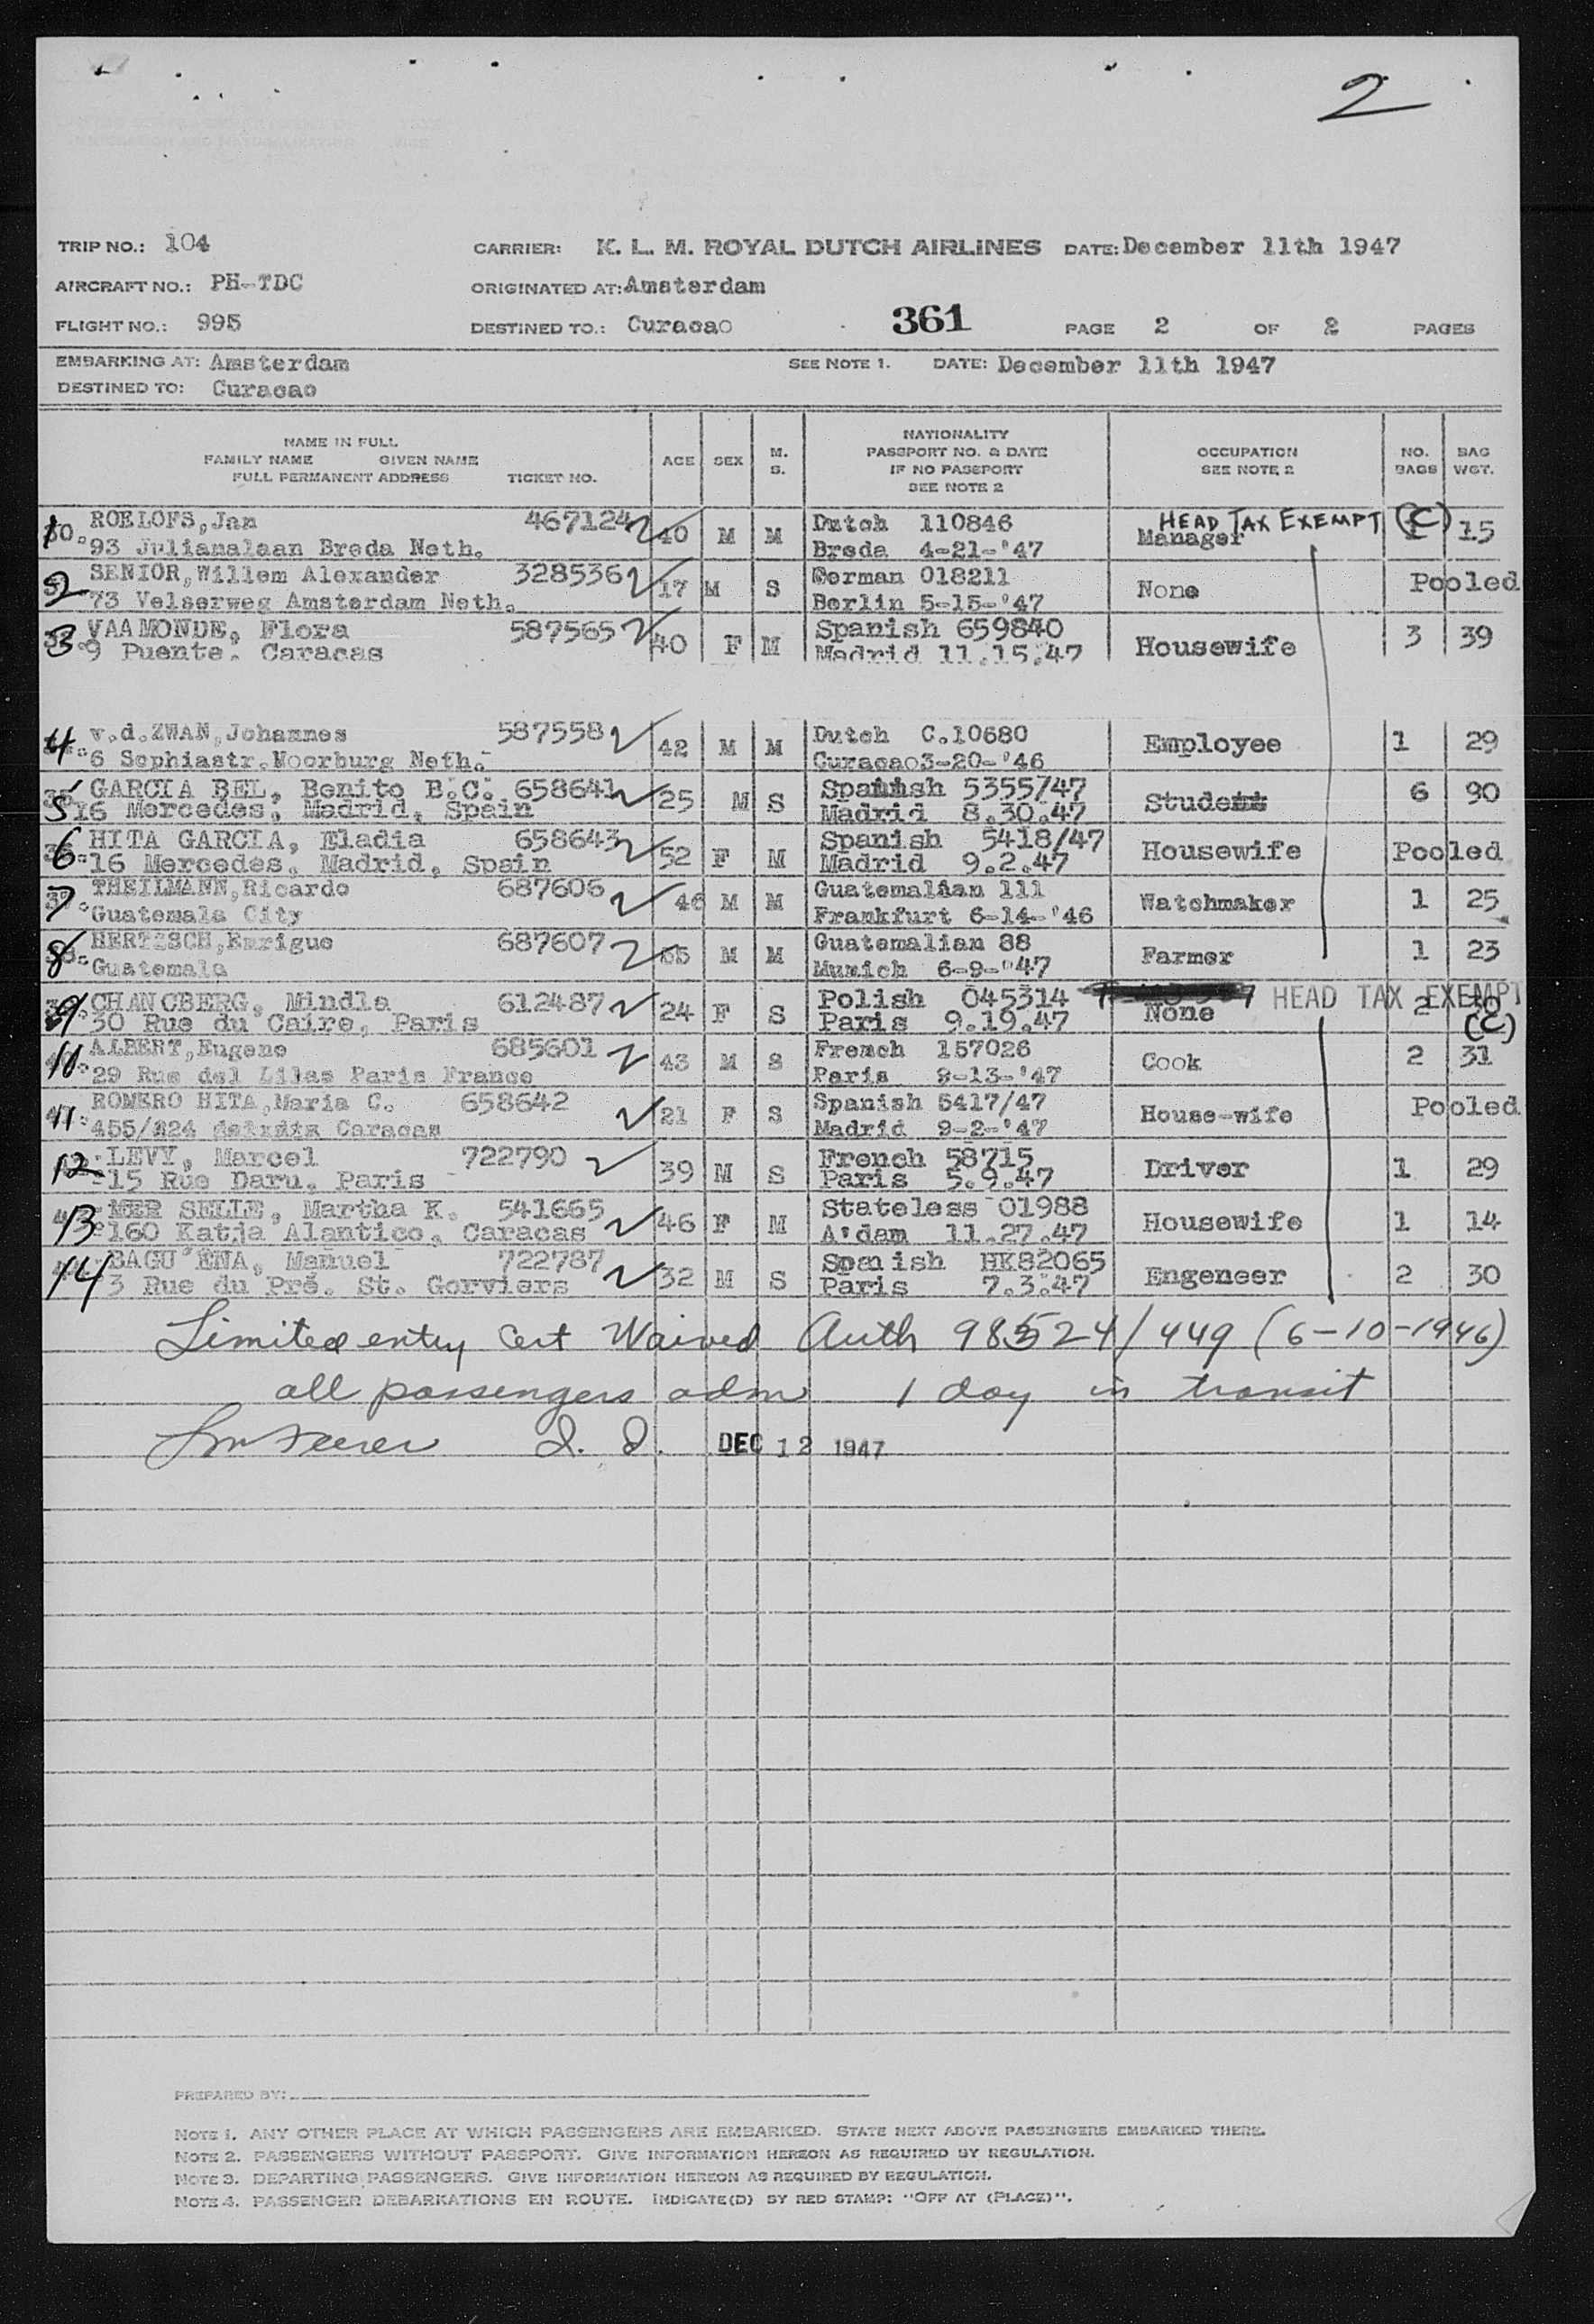 2
TRIP NO.: 104 CARRIER: K. L. M. ROYAL DUTCH AIRLINES DATE: December 11th 1947
AIRCRAFT NO.: PH-TDC ORIGINATED AT: Amsterdam
FLIGHT NO.: 995 DESTINED TO.: Curacao 361 PAGE 2 OF 2 PAGES
EMBARKING AT: Amsterdam SEE NOTE 1. DATE: December 11th 1947
DESTINED TO: Curacao
NAME IN FULL
FAMILY NAME GIVEN NAME
FULL PERMANENT ADDRESS TICKET NO.
AGE SEX M. S.
NATIONALITY
PASSPORT NO. & DATE
IF NO PASSPORT
SEE NOTE 2
OCCUPATION
SEE NOTE 2
NO. BAGS BAG WGT.
ROELOFS, Jan 467124 40 M M Dutch 110846 HEAD TAX EXEMPT (C) 15
93 Julianalaan Breda Neth. Breda 4-21-'47 Manager
SENIOR, Willem Alexander 328536 17 M S German 018211 None Pooled
73 Velserweg Amsterdam Neth. Berlin 5-15-'47
3 VAAMONDE, Flora 587565 40 F M Spanish 659840 Housewife 3 39
9 Puente. Caracas Madrid 11.15.47
4 v.d.ZWAN, Johannes 587558 42 M M Dutch C.10680 Employee 1 29
6 Sophiastr. Noorburg Neth. Curacao 3-20-'46
5 GARCIA BEL, Benito B.C. 658641 25 M S Spanish 5355/47 Student 6 90
16 Mercedes, Madrid, Spain Madrid 8.30.47
6 HITA GARCIA, Eladia 658643 52 F M Spanish 5418/47 Housewife Pooled
16 Mercedes, Madrid, Spain Madrid 9.2.47
7 THEILMANN, Ricardo 687606 46 M M Guatemalian 111 Watchmaker 1 25
Guatemala City Frankfurt 6-14-'46
8 HERTZSCH, Enrigue 687607 M M Guatemalian 88 Farmer 1 23
Guatemala Munich 6-9-'47
9 CHANCBERG, Mindla 612487 24 F S Polish 045314 HEAD TAX EXEMPT 2 30
30 Rue du Caire, Paris Paris 9.19.47 None (C)
ALBERT, Eugene 685601 43 M S French 157026 Cook 2 31
29 Rue del Lilas Paris France Paris 9-13-'47
ROMERO HITA, Maria C. 658642 21 F S Spanish 5417/47 House-wife Pooled
455/224 Caracas Madrid 9-2-'47
12 LEVY, Marcel 722790 39 M S French 58715 Driver 1 29
15 Rue Daru, Paris Paris 5.9.47
13 MER SELLE, Martha K. 541665 46 F M Stateless 01988 Housewife 1 14
160 Katja Alantico, Caracas A'dam 11.27.47
14 BAGU ENA, Manuel 722787 32 M S Spanish HK82065 Engeneer 2 30
3 Rue du Pré. St. Gorviers Paris 7.3.47
Limited entry Cert Waived Auth 98524/449 (6-10-1946)
all passengers adm 1 day in transit
DEC 12 1947
PREPARED BY:
NOTE 1. ANY OTHER PLACE AT WHICH PASSENGERS ARE EMBARKED. STATE NEXT ABOVE PASSENGERS EMBARKED THERE.
NOTE 2. PASSENGERS WITHOUT PASSPORT. GIVE INFORMATION HEREON AS REQUIRED BY REGULATION.
NOTE 3. DEPARTING PASSENGERS. GIVE INFORMATION HEREON AS REQUIRED BY REGULATION.
NOTE 4. PASSENGER DEBARKATIONS EN ROUTE. INDICATE(D) BY RED STAMP: "OFF AT (PLACE)".